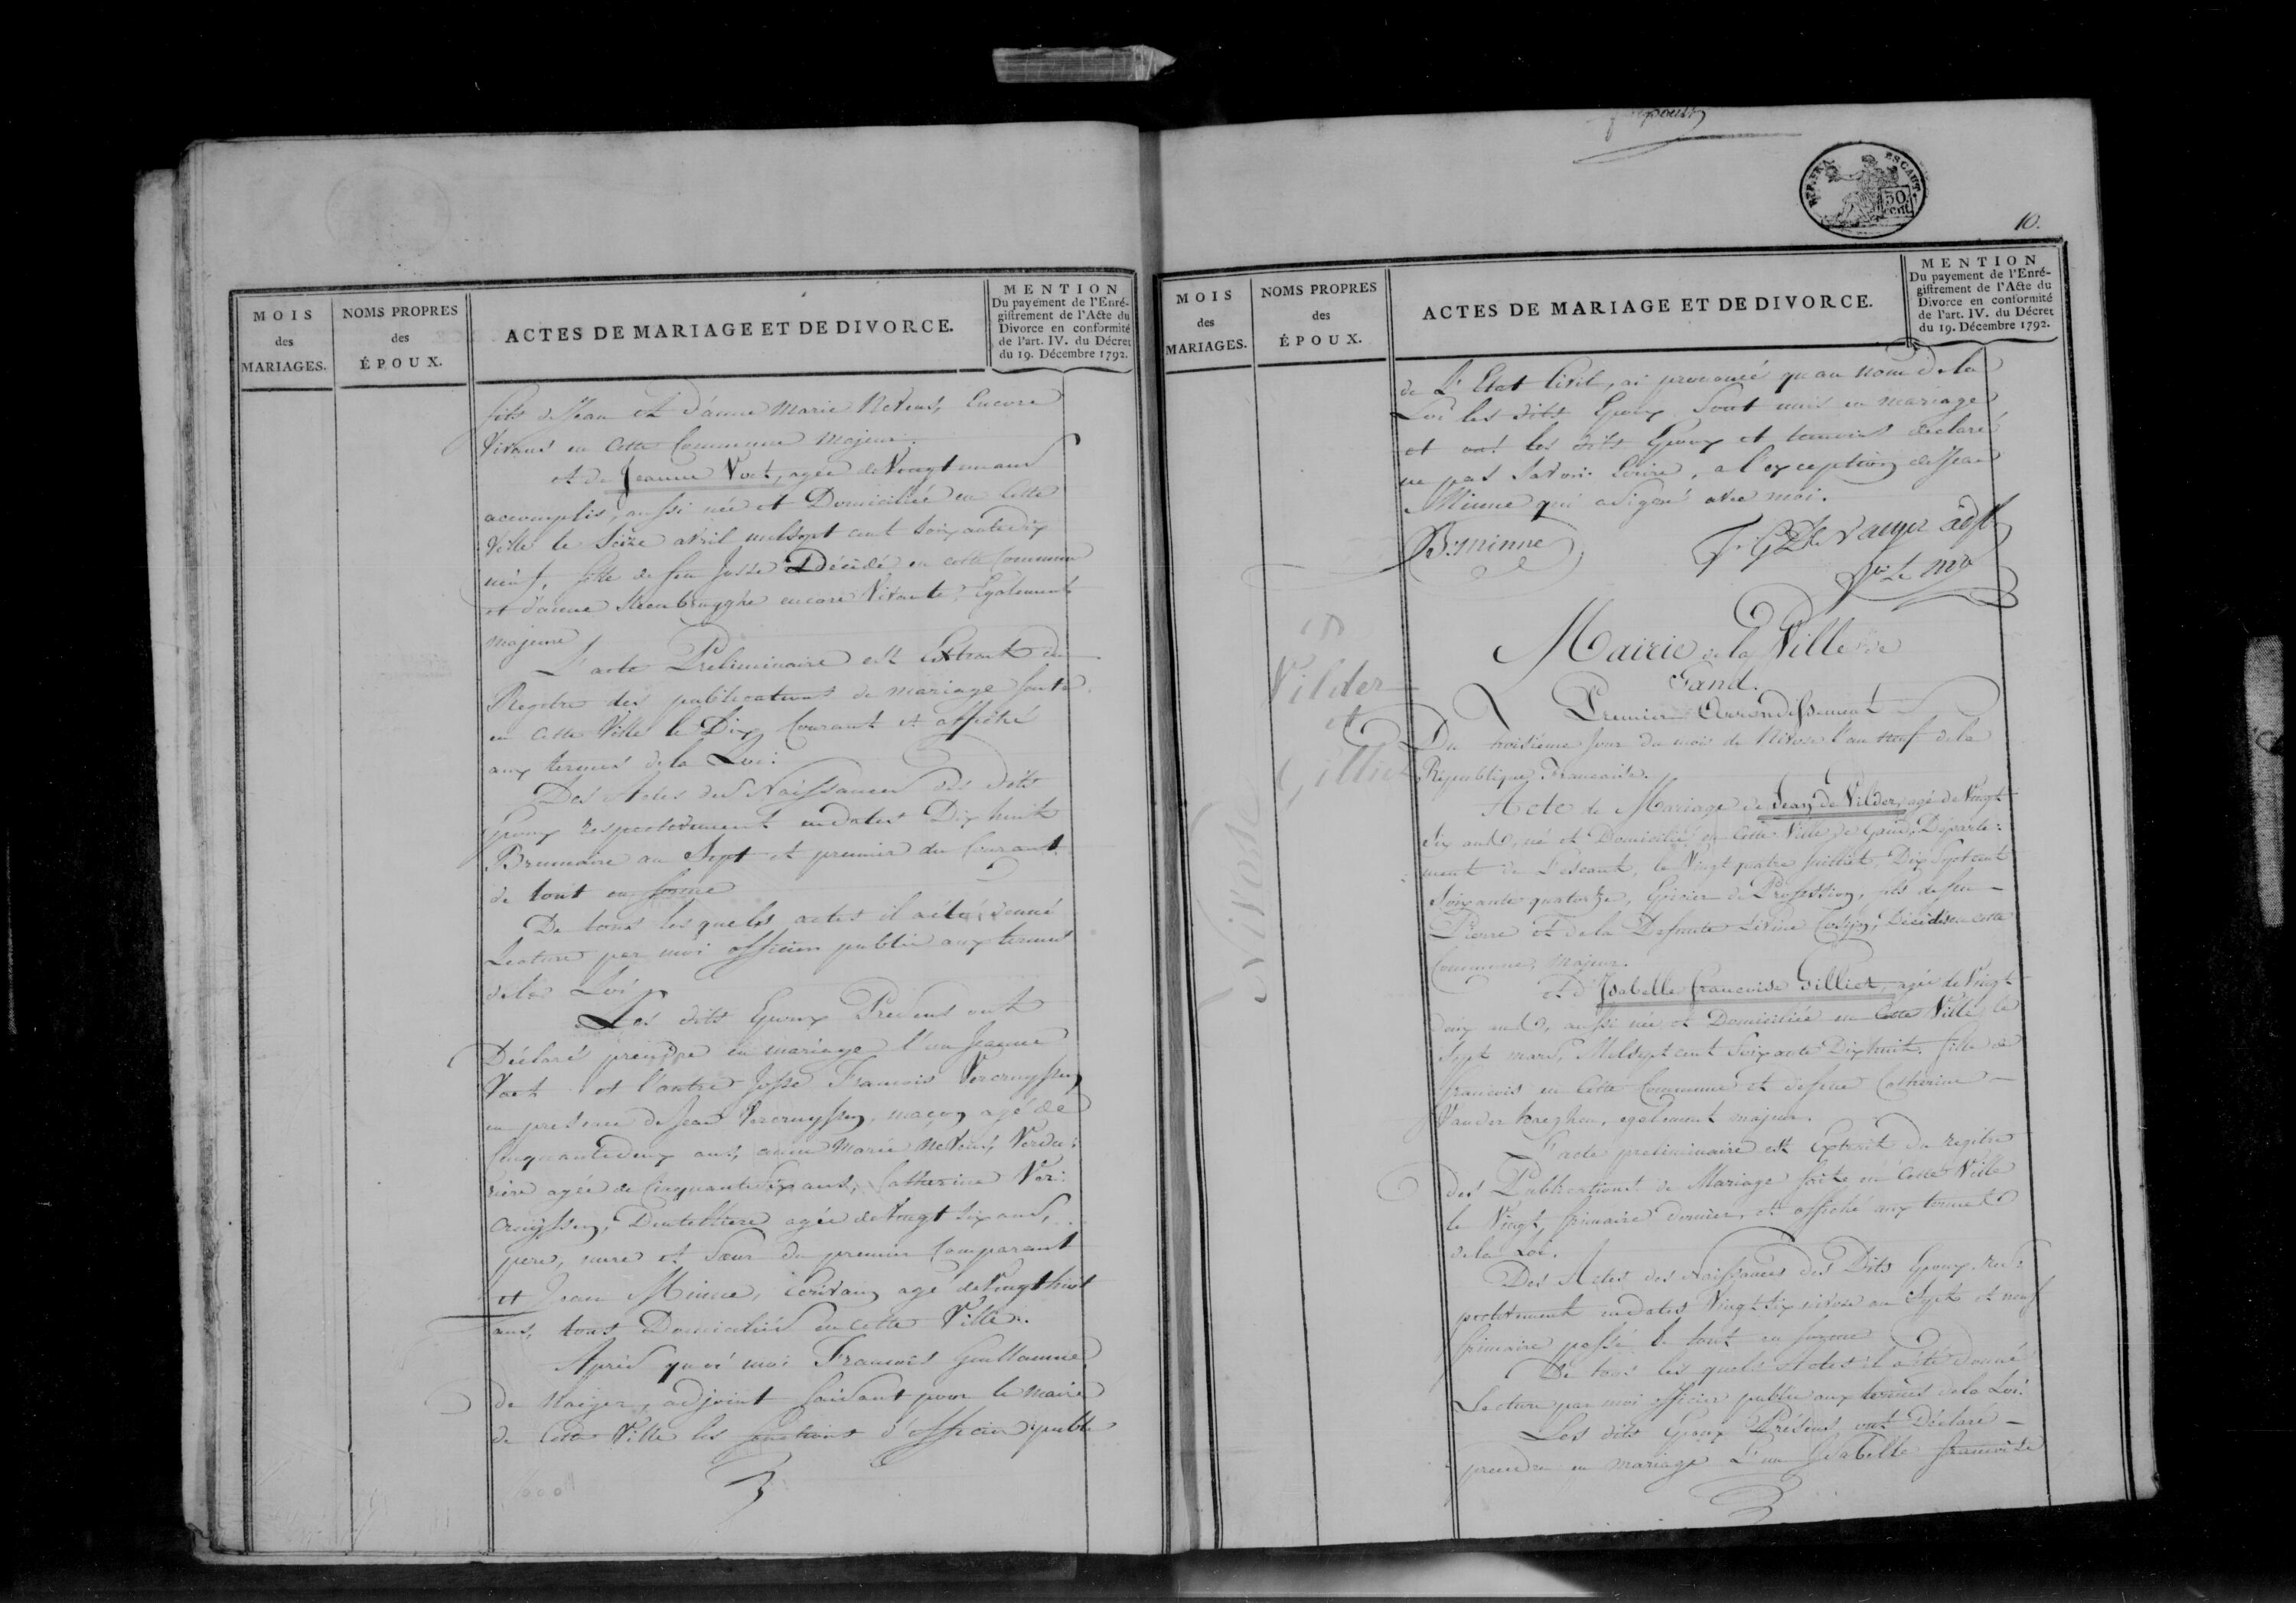 MOIS
des
MARIAGES.
NOMS PROPRES
des
ÉPOUX.
ACTES DE MARIAGE ET DE DIVORCE.
MENTION
Du payement de l'Enré-
gistrement de l'Acte du
Divorce en conformité
de l'art. IV. du Décret
du 19. Décembre 1792.
fils de Jean et d'anne Marie Nevens, Encore
Vivans en Cette Commune Majeur.
et de Jeanne Voet, agée de Vingt un ans
accomplis, aussi née et Domiciliée en Cette
Ville le Seize avril mil sept cent soixante dix
neuf, fille de feu Josse Décédé en cette Commune
et d'anne Steenbrugghe encore Vivante, Egalement
majeure
L'acte Préliminaire est Extrait du
Registre des publications de mariage faite
en Cette Ville le Dix Courant et affiché
aux termes de la Loi.
Des Actes des Naissances des dits
Epoux respectivement en dates Dix huit
Brumaire an Sept et premier du Courant
de tout en forme
De tous les quels actes il a été donné
Lecture par moi officier public aux termes
de la Loi
Les dits Epoux Présens ont
Déclaré prendre en mariage l'un Jeanne
Voet et l'autre Josse Francois Vercruyssen
en présence de Jean Vercruyssen, maçon agé de
Cinquante deux ans, anne Marie Nevens, Verdu:
rière agée de Cinquante six ans, Catherine Ver:
cruyssen, Dentelliere agée de Vingt six ans,
pere, mere et Sœur du premier Comparant
et Jean Minne, écrivain agé de Vingt huit
ans, tous Domiciliés en cette Ville.
Après quoi moi Francois Guillaume
de Naeyer, adjoint faisant pour le maire
de Cette Ville les fonctions d'officier public
10.
MOIS
des
MARIAGES.
NOMS PROPRES
des
ÉPOUX.
ACTES DE MARIAGE ET DE DIVORCE.
MENTION
Du payement de l'Enré-
gistrement de l'Acte du
Divorce en conformité
de l'art. IV. du Décret
du 19. Décembre 1792.
de L'Etat Civil, ai prononcé qu'au nom de la
Loi les dits Epoux sont unis en mariage
et ont les dits Epoux et temoins déclaré
ne pas Savoir Ecrire, a l'exception de Jean
Minne qui a signé avec moi.
Minne
Nivose
Vilder
et
Gilliet
Mairie de la Ville de
Gand.
Premier Arrondissement
Du troisième Jour du mois de Nivose l'an neuf de la
République Francaise.
Acte de Mariage de Jean de Vilder, agé de Vingt
Six ans, né et Domicilié en Cette Ville de Gand, Départe:
ment de L'escaut, le Vingt quatre Juilliet, Dix Sept cent
Soixante quatorze, Epicier de Profession, fils de feu
Pierre et de la Defunte Livine Décédés en cette
Commune, majeur.
et d'Isabelle francoise Gilliet, agée de Vingt
Deux ans, aussi née et Domiciliée en Cette Ville le
Sept mars, Mil Sept cent Soixante Dix huit. fille de
francois en Cette Commune et de feue Catherine
Vander haeghen, egalement majeur.
L'acte preliminaire est Extrait du registre
des Publications de Mariage faite en Cette Ville
le Vingt frimaire dernier, et affiché aux termes
de la Loi.
Des Actes des Naissances des Dits Epoux res:
pectivement en dates Vingt six nivose an Sept et neuf
frimaire passé le tout en forme
De tous les quels actes il a été donné
Lecture par moi officier public aux termes de la Loi.
Les dits Epoux Présens ont Déclaré
prendre en mariage L'un Isabelle francoise